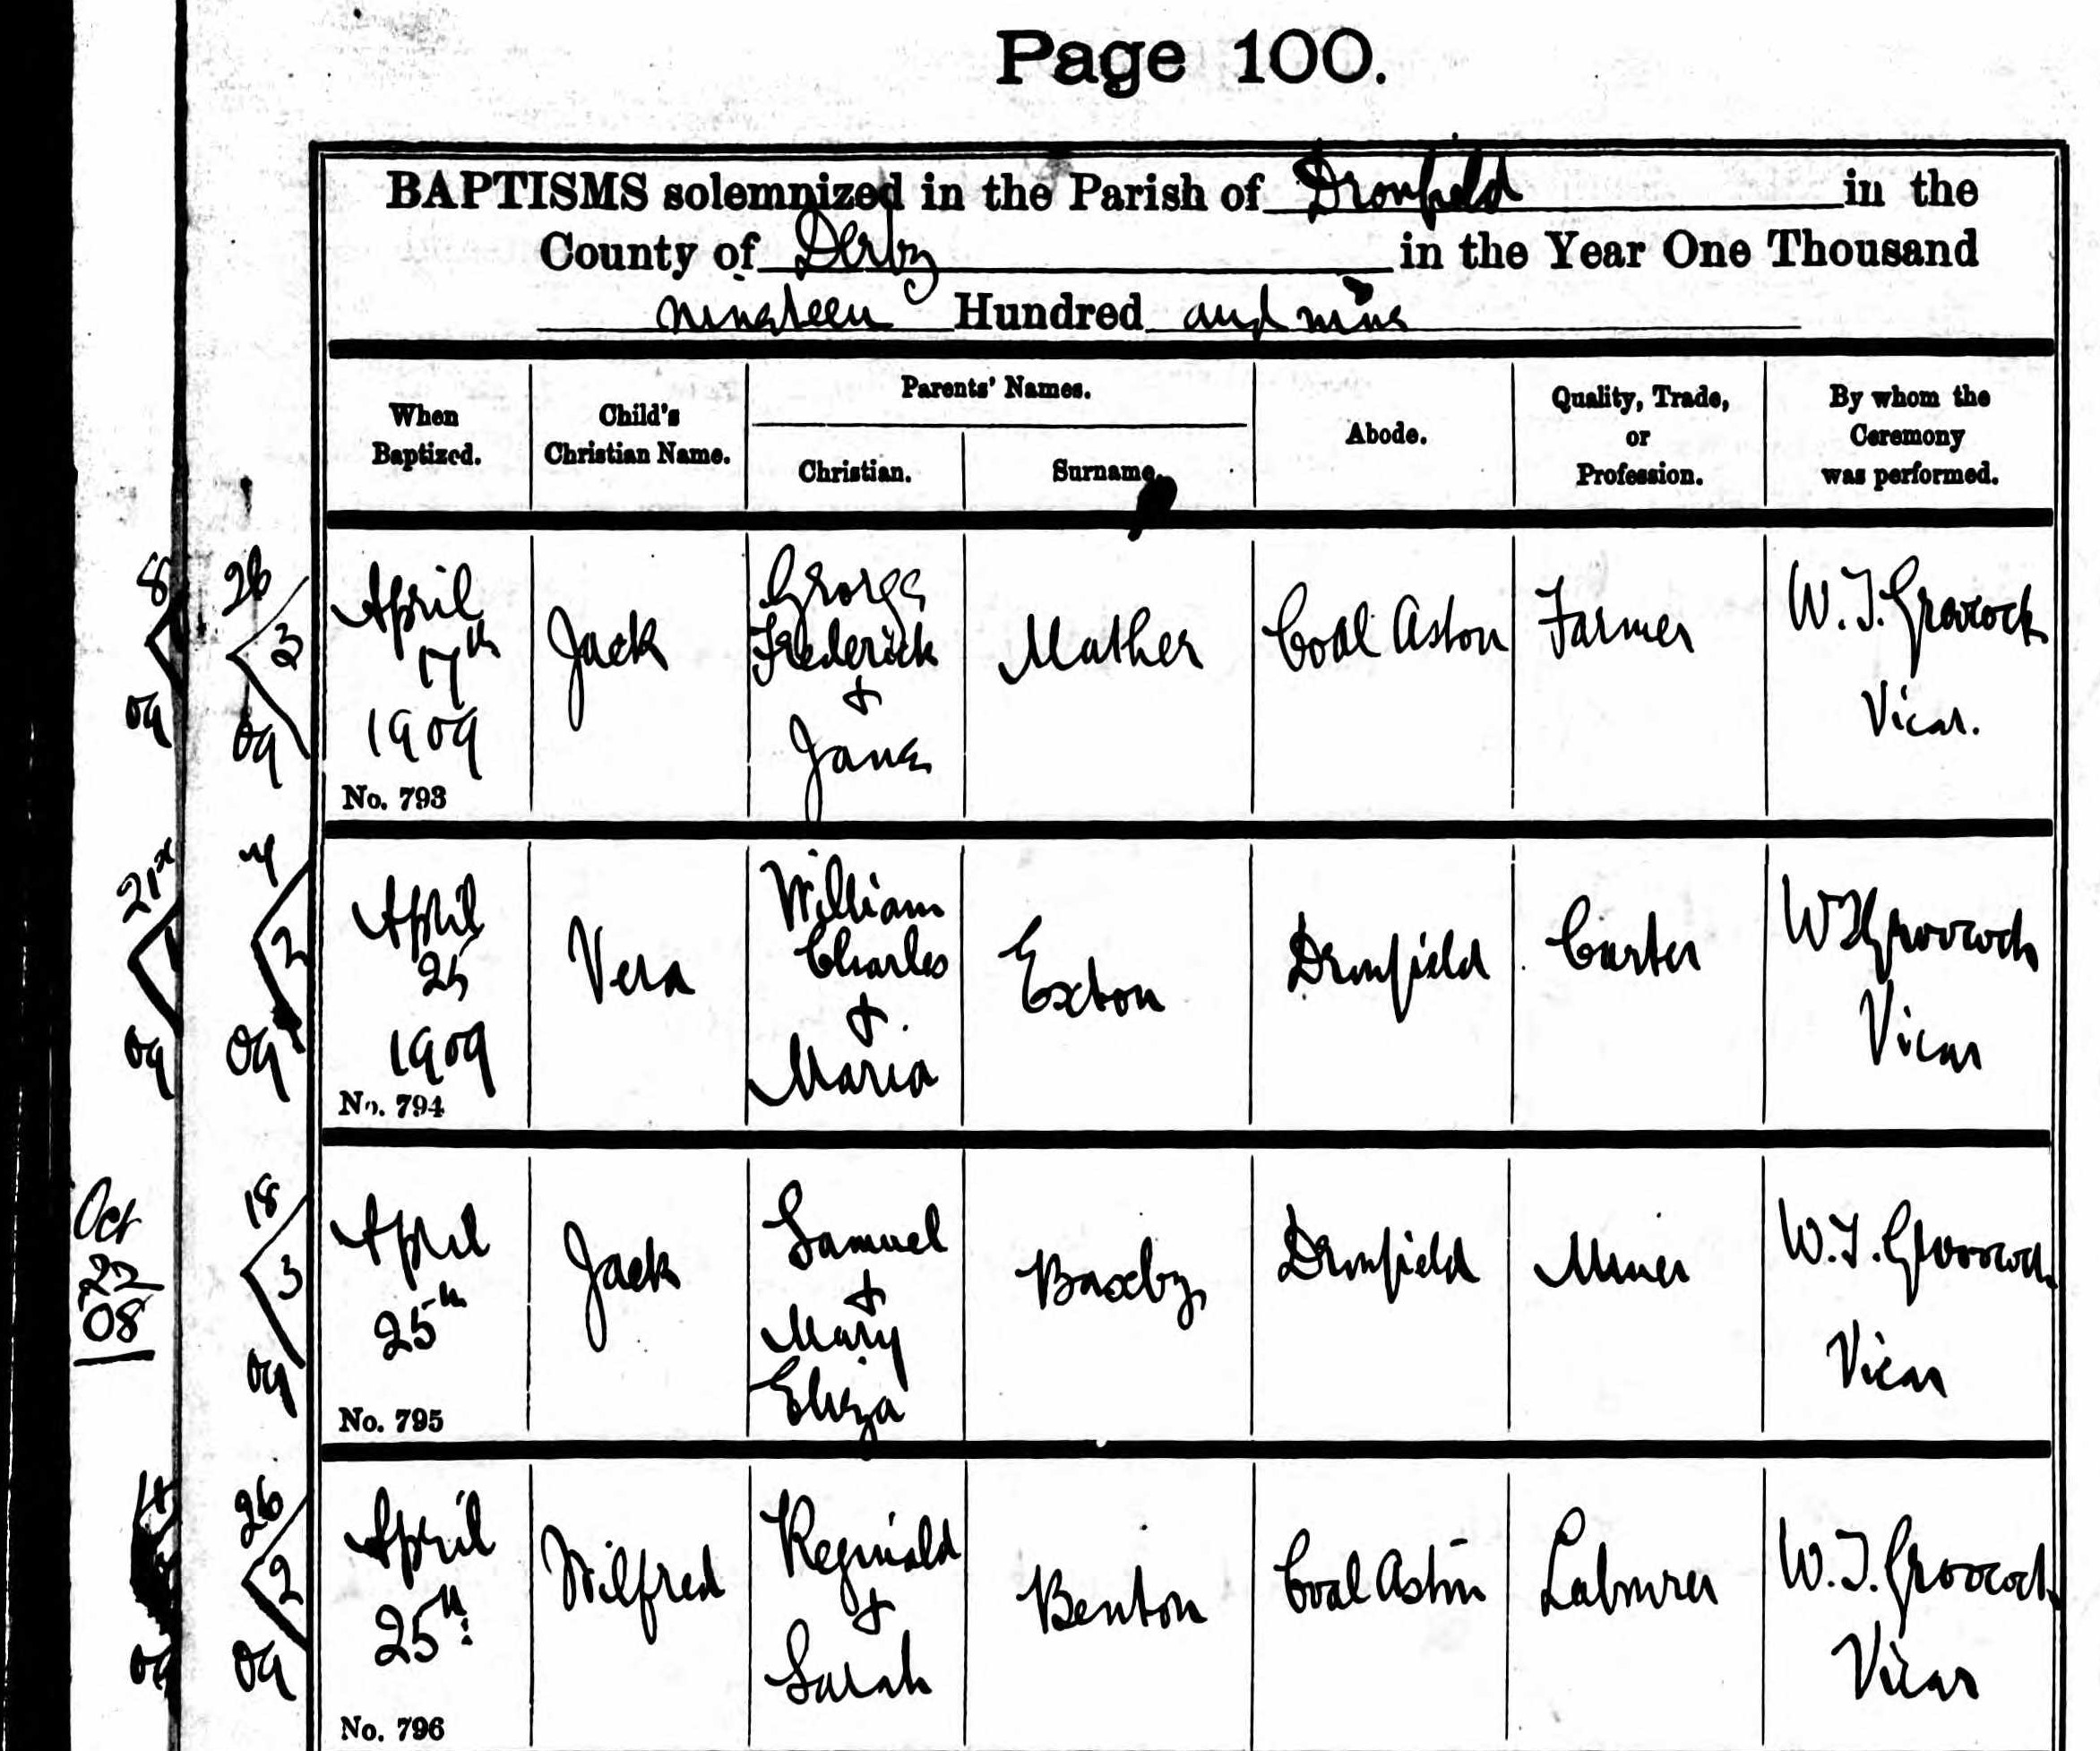 Page 100.
BAPTISMS solemnized in the Parish of Dronfield in the
County of Derby in the Year One Thousand
nineteen Hundred and nine
When Baptized.
Child's Christian Name.
Parents' Names.
Christian.
Surname.
Abode.
Quality, Trade, or Profession.
By whom the Ceremony was performed.
8
09
26
3
09
April
17th
1909
No. 793
Jack
George
Frederick
&
Jane
Mather
Coal Aston
Farmer
W. T. Groocock
Vicar.
21st
09
2
09
April
25
1909
No. 794
Vera
William
Charles
&
Maria
Exton
Dronfield
Carter
W T Groocock
Vicar
Oct
22
08
18
3
09
April
25th
No. 795
Jack
Samuel
&
Mary
Eliza
Baxby
Dronfield
Miner
W. T. Groocock
Vicar
09
26
2
09
April
25th
No. 796
Wilfred
Reginald
&
Sarah
Benton
Coal Aston
Labourer
W. T. Groocock
Vicar